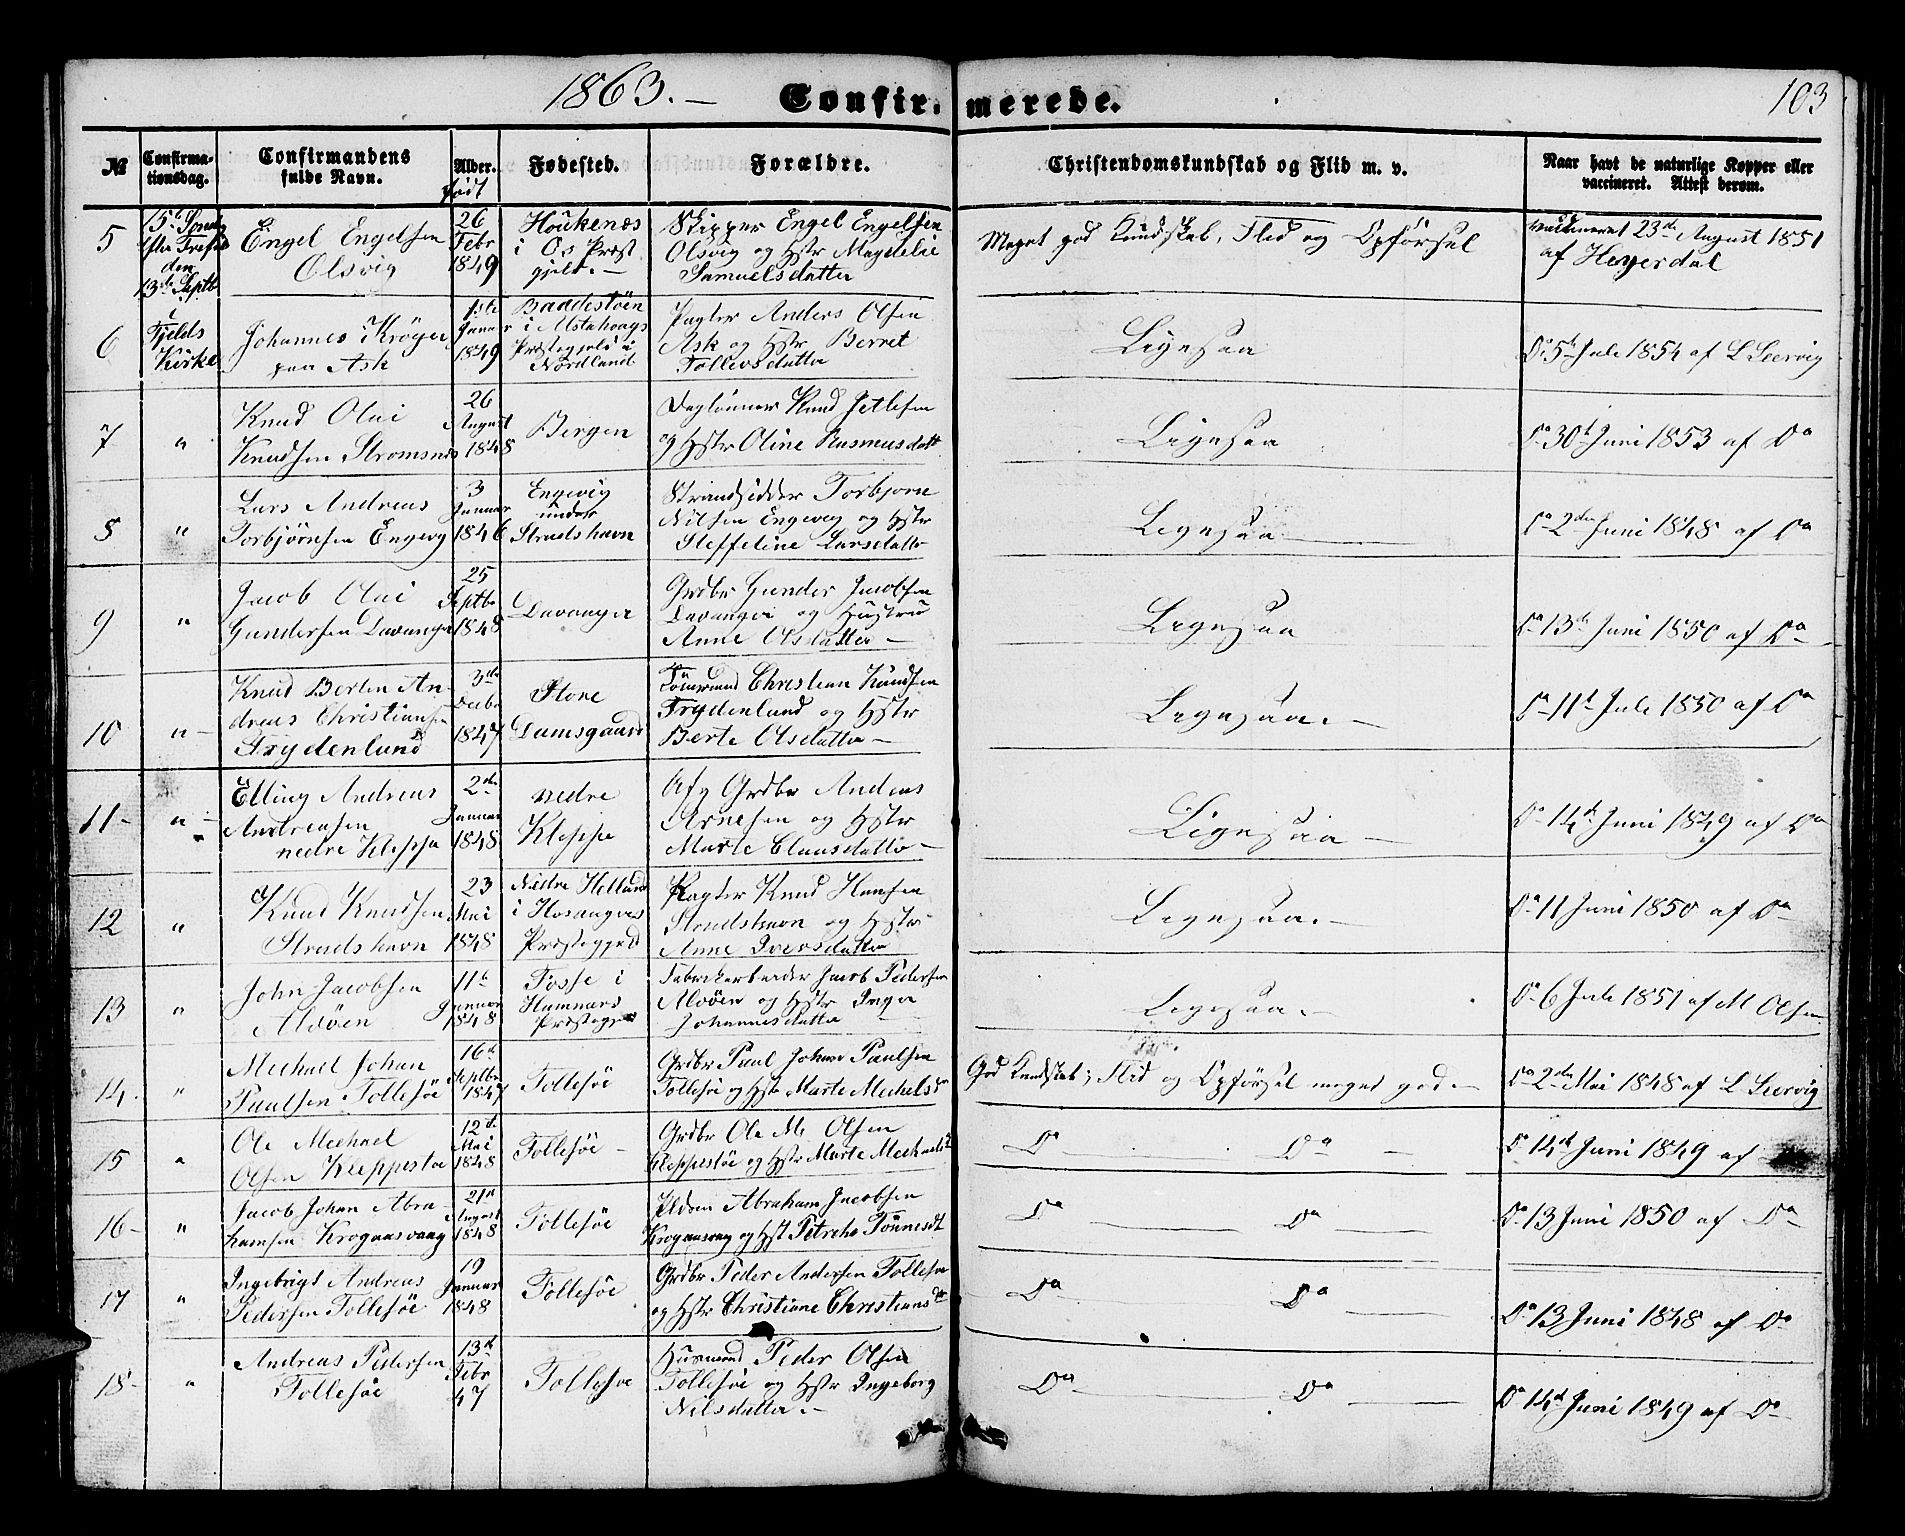 1863. — Confirmerede. 103
№ Confirma-tionsdag. Confirmandens fulde Navn. Alder. Fødested. Forældre. Christendomskundskab og Flid m. v. Naar havt de naturlige Kopper eller vaccineret. Attest derom.
født
5 15de Søndg efter Trefol den 13de Septb
Engel Engelsen
Olsvig
26 Febr 1849
Houkenæs
i Os Præst
gjeld. —
Skipper Engel Engelsen
Olsvig og Hstr Magdelie
Samuelsdatter
Meget god Kundskab, Flid og Opførsel
vaccineret 23de August 1851
af Heyerdal
6 i Fjelds Kirke
Johannes Krøger
paa Ask
1ste Januar 1849
i Alstahougs
Præstegjeld i
Nordland
Pagter Anders Olsen
Ask og Hstr Berret
Tollevsdatter
Ligesaa
Do 5te Juli 1854 af L Leervig
7 "
Knud Olai
Knudsen Strømsnes
26 August 1848
Bergen
Daglønner Knud Jetlesen
og Hstr Oline Rasmusdatt
Ligesaa
Do 30te Juni 1853 af Do
8 "
Lars Andreas
Torbjørnsen Engevig
3 Januar 1846
Engevig
under
Strudshavn
Strandsidder Torbjørn
Nilsen Engevig og Hstr
Steffeline Larsdatter
Ligesaa
Do 2den Juni 1848 af Do
9 "
Jacob Olai
Gundersen Davanger
25 Septbr 1848
Davanger
Grdbr Gunder Jacobsen
Davanger og Hustru
Anne Olsdatter —
Ligesaa
Do 13de Juni 1850 af Do
10 "
Knud Bertin An-
dreas Christiansen
Frydenlund
3de Decbr 1847
Store
Damsgaard
Christian Knudsen
Frydenlund og Hstr
Berte Olsdatter —
Ligesaa. —
Do 11te Juli 1850 af Do
11 - "
Elling Andreas
Andreasen
nedre Kleppe
2den Januar 1848
nedre
Kleppe
Afg Grdbr Andreas
Arnesen og Hstr
Marte Clausdatter —
Ligesaa —
Do 14de Juni 1849 af Do
12 "
Knud Knudsen
Strudshavn
23 Mai 1848
Nedre Helland
i Hosangers
Præstegjeld
Pagter Knud Hansen
Strudshavn og Hstr
Anne Iversdatter
Ligesaa. —
Do 11 Juni 1850 af Do
13 "
John Jacobsen
Alvøen
11te Januar 1848
Fosse i
Hammars
Præstegj
Fabrikarbeider Jacob Pedersen
Alvøen og Hstr Inger
Johannesdatter
Ligesaa. —
Do 6 Juli 1851 af M Olsen
14. "
Mechael Johan
Paulsen Follesøe
16de Septbr 1847
Follesøe
Grdbr Paul Johan Paulsen
Follesøe og Hstr Marte Mechelsdr
God Kundskab; Flid og Opførsel meget god. —
Do 2den Mai 1848 af L Leervig
15 "
Ole Mechael
Olsen Kleppestøe
12te Mai 1848
Follesøe —
Grdbr Ole M. Olsen
Kleppestøe og Hstr Marte Mechaelsd
Do — Do —
Do 14de Juni 1849 af
16 - "
Jacob Johan Abra-
hamsen Krogaasvaag
21de August 1848
Follesøe
Abraham Jacobsen
Krogaasvaag og Hst Petrche Tønnesdt
Do — Do —
Do 13 Juni 1850 af Do
17 "
Ingebrigt Andreas
Pedersen Follesøe
19 Januar 1848
Follesøe
Grdbr Peder Andersen Follesøe
og Hstr Christiane Christiansdr
Do Do —
Do 13 Juni 1848 af Do
18 - "
Andreas Pedersen
Follesøe
13de Febr 47
Follesøe
Husmand Peder Olsen
Follesøe og Hstr Ingeborg
Nilsdatter. —
Do — Do —
Do 14de Juni 1849 af Do